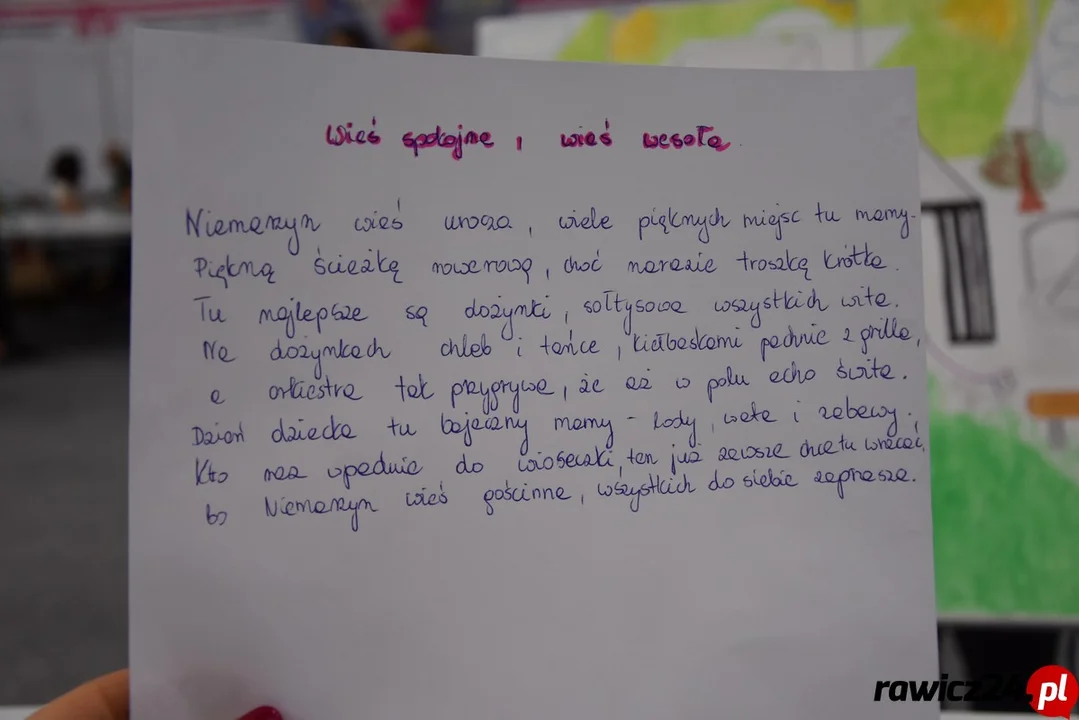 Wieś spokojna, wieś wesoła.
Niemarzyn wieś urocza, wiele pięknych miejsc tu mamy.
Piękną ścieżką rowerową, choć narazie troszką krótka.
Tu najlepsze są dożynki, sołtysowa wszystkich wita.
Na dożynkach chleb i tańce, kiełbaskami pachnie z grilla,
a orkiestra tak przygrywa, że aż w polu echo świta.
Dzień dziecka tu bajeczny mamy - lody, wata i zabawy,
Kto raz wpadnie do wioseczki, ten już zawsze chce tu wracać,
bo Niemarzyn wieś gościnna, wszystkich do siebie zaprasza.
rawicz24.pl